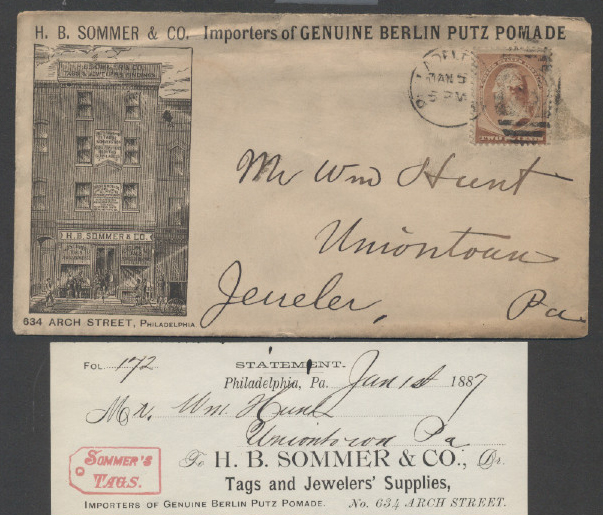 H. B. SOMMER & CO. Importers of GENUINE BERLIN PUTZ POMADE
JAN 5
5 PM
H. B. SOMMER & CO.
Mr Wm Hunt
Uniontown
Jeweler, Pa
634 ARCH STREET, PHILADELPHIA
FOL. 172 STATEMENT.
Philadelphia, Pa. Jan 1st 1887
Mr. Wm. Hunt
Uniontown Pa
SOMMER'S
TAGS.
To H. B. SOMMER & CO., Dr.
Tags and Jewelers' Supplies,
IMPORTERS OF GENUINE BERLIN PUTZ POMADE. No. 634 ARCH STREET.